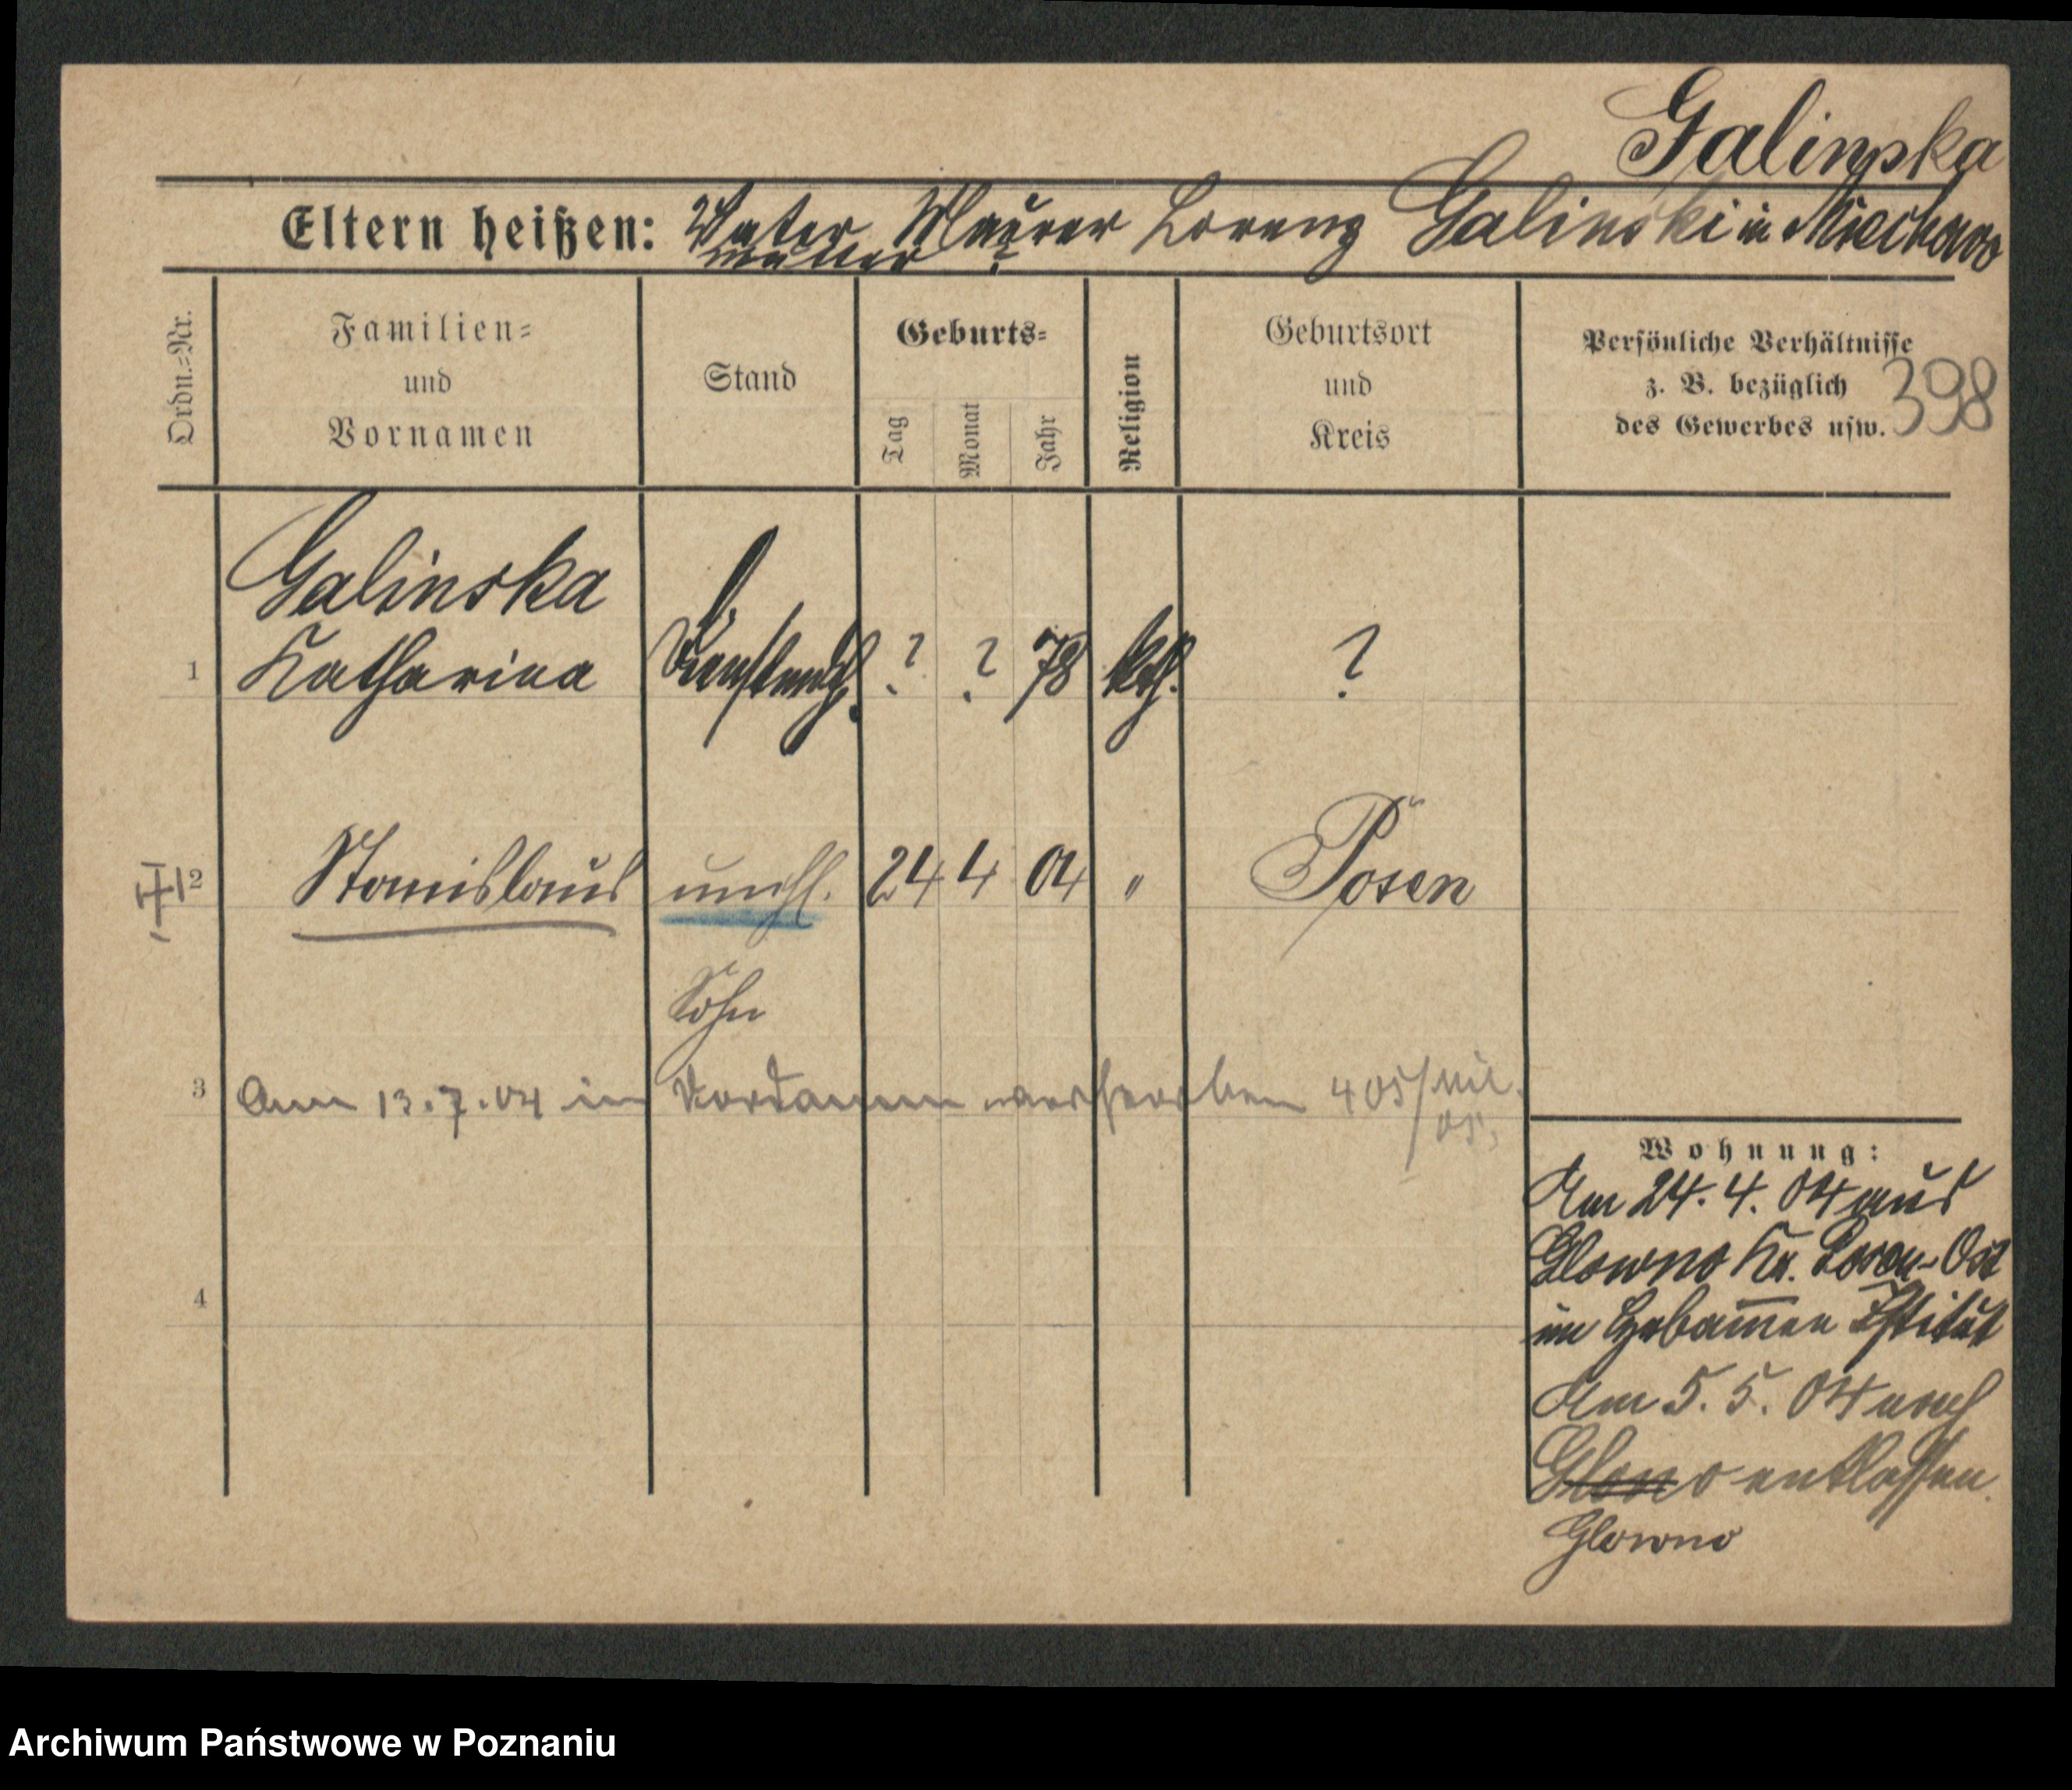 Galinska
Eltern heißen: Vater Maurer Lorenz Galinski in Miechowo
Mutter ?
Ordn.=Nr.
Familien=
und
Vornamen
Stand
Geburts=
Tag
Monat
Jahr
Religion
Geburtsort
und
Kreis
Persönliche Verhältnisse
z. B. bezüglich
des Gewerbes usw.
398
Galinska
1 Katharina ? ? 78 kth. ?
2 Stanislaus unehl. 24 4 04 " Posen
Sohn
3 Am 13.7.04 in verstorben 405/VII.
05.
Wohnung:
Am 24. 4. 04 aus
Glowno Kr. Posen-Ost
im Hebam̄en Istitut
4
Am 5. 5. 04 nach
Glono entlassen.
Glowno
Archiwum Państwowe w Poznaniu